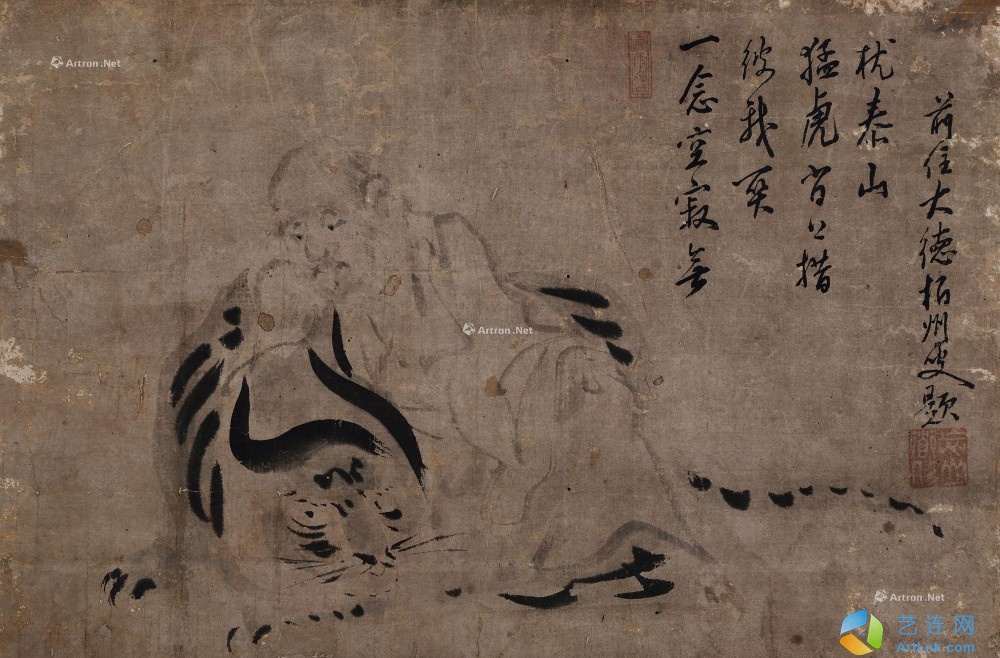 一念空寂無
彼我
猛虎背上措
枕泰山
前住大德栢州叟題
Artron.Net
Artron.Net
Artron.Net
艺连网
ArtLnk.com